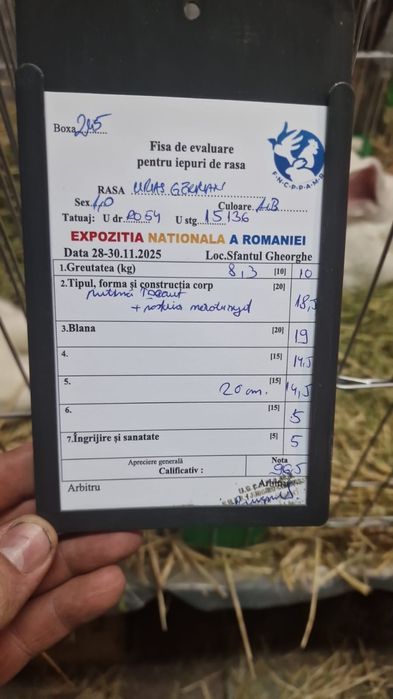 Boxa 245
Fisa de evaluare
pentru iepuri de rasa
F.N.C.P.P.A.M.R
RASA URIAS GERMAN
Sex 1,0 Culoare AB
Tatuaj: U dr RO54 U stg 15136
EXPOZITIA NATIONALA A ROMANIEI
Data 28-30.11.2025 Loc.Sfantul Gheorghe
1.Greutatea (kg) 8,3 [10] 10
2.Tipul, forma și construcția corp [20] 18,5
3.Blana [20] 19
4. [15] 14,5
5. 20 cm. [15] 14,5
6. [15] 5
7.Îngrijire și sanatate [5] 5
Apreciere generală Nota
Calificativ :
Arbitru Arbitru